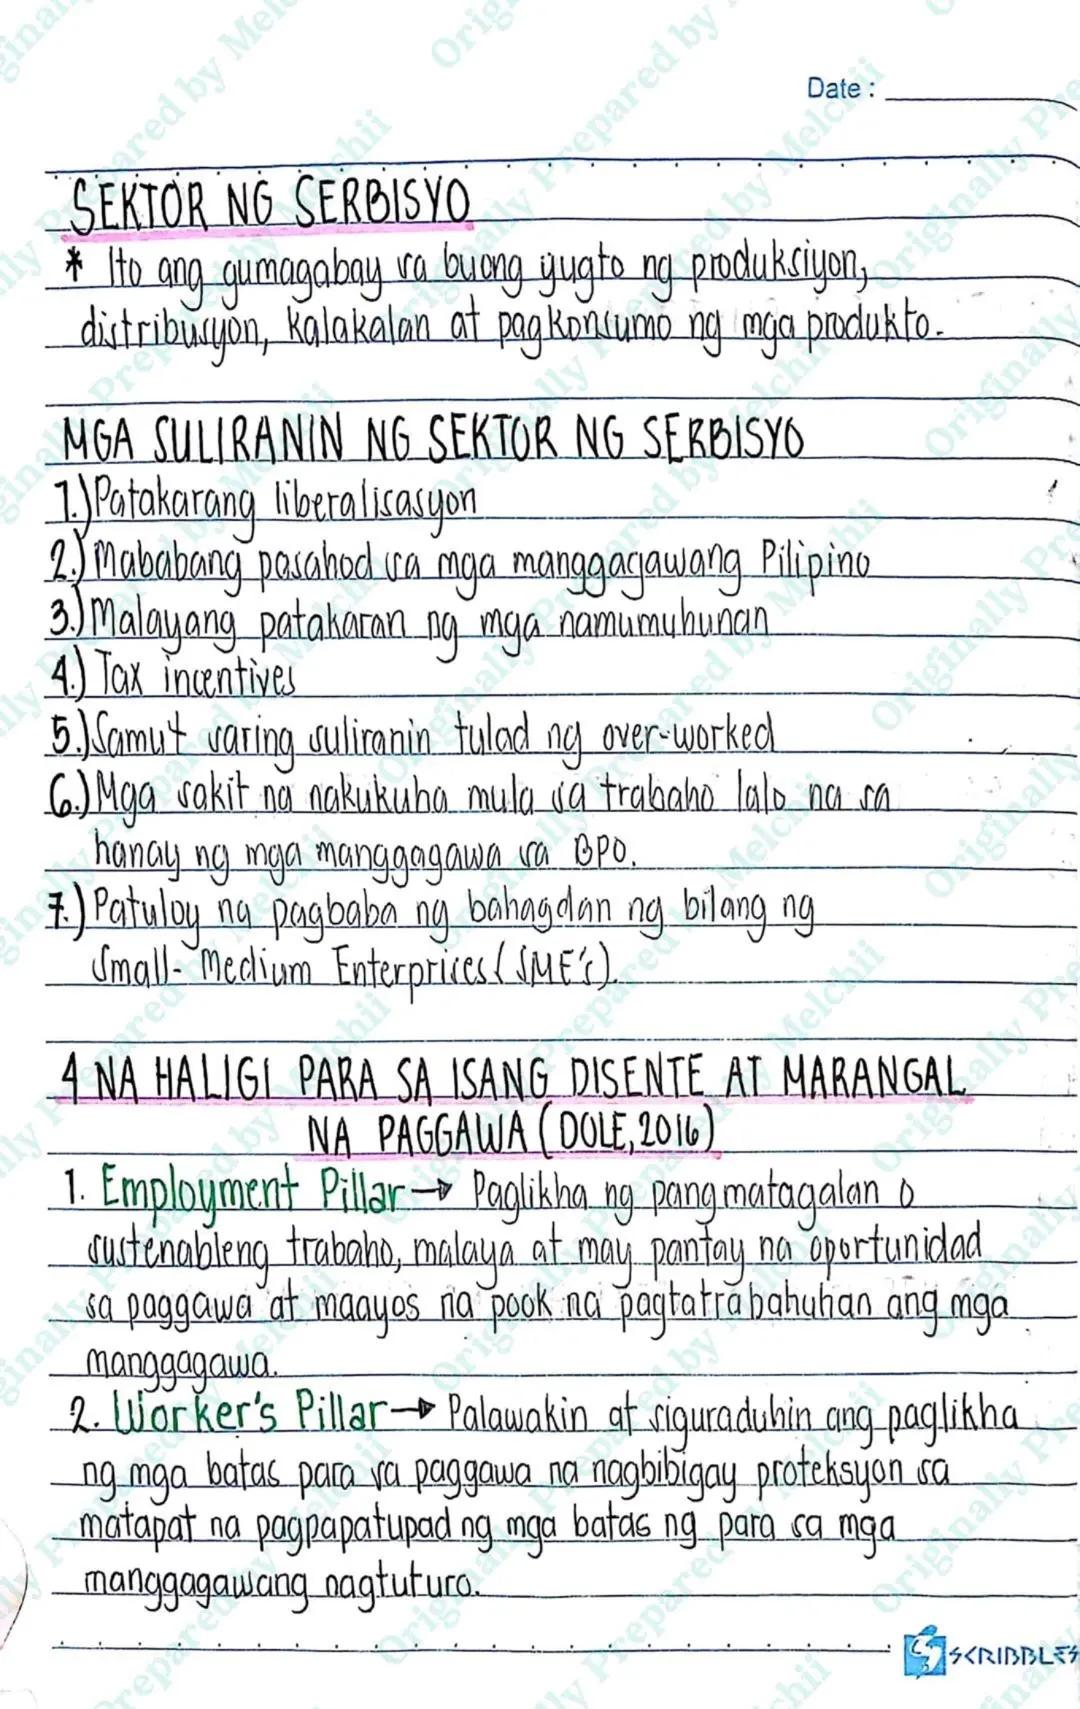 Date :
SEKTOR NG SERBISYO
* Ito ang gumagabay sa buong yugto ng produksiyon,
distribusyon, kalakalan at pagkonsumo ng mga produkto.
MGA SULIRANIN NG SEKTOR NG SERBISYO
1.) Patakarang liberalisasyon
2.) Mababang pasahod sa mga manggagawang Pilipino
3.) Malayang patakaran ng mga namumuhunan
4.) Tax incentives
5.) Samut saring suliranin tulad ng over-worked
6.) Mga sakit na nakukuha mula sa trabaho lalo na sa
hanay ng mga manggagawa sa BPO.
7.) Patuloy na pagbaba ng bahagdan ng bilang ng
Small- Medium Enterprises (SME's).
4 NA HALIGI PARA SA ISANG DISENTE AT MARANGAL
NA PAGGAWA (DOLE, 2016)
1. Employment Pillar → Paglikha ng pangmatagalan o
sustenableng trabaho, malaya at may pantay na oportunidad
sa paggawa at maayos na pook na pagtatrabahuhan ang mga
manggagawa.
2. Worker's Pillar → Palawakin at siguraduhin ang paglikha
ng mga batas para sa paggawa na nagbibigay proteksyon sa
matapat na pagpapatupad ng mga batas ng para sa mga
manggagawang nagtuturo.
SCRIBBLES
Originally Prepared by Melchii